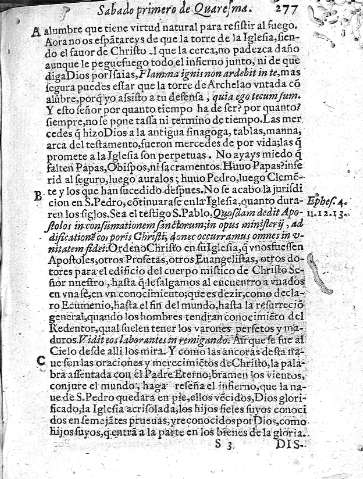 Sabado primero de Quaresma. 277
A alumbre que tiene virtud natural para resistir al fuego.
Aora no os espãtareys de que la torre de la Iglesia, sien-
do el fauor de Christo el que la cerca, no padezca daño
aunque le pegue fuego todo el infierno junto, ni de que
diga Dios por Isaias, Flamma ignis non ardebit in te, mas
segura puedes estar que la torre de Archelao vntada cõ
alũbre, porq̃ yo assisto a tu defensa, quia ego tecum sum.
Y esto señor por quanto tiempo ha de ser? por quanto?
siempre, no se pone tassa ni termino de tiempo. Las mer-
cedes q̃ hizo Dios a la antigua sinagoga, tablas, manna,
arca del testamento, fueron mercedes de por vida, las q̃
promete a la Iglesia son perpetuas. No ayays miedo q̃
falten Papas, Obispos, ni sacramentos. Huuo Papas? infe-
rid al seguro, luego auralos: huuo Pedro, luego Clemẽ-
te y los que han sucedido despues. No se acabo la juridi-
B cion en S. Pedro, cõtinuarase en la Iglesia, quanto dura-
ren los siglos. Sea el testigo S. Pablo. Quosdam dedit Apo-
stolos in consummationem sanctorum, in opus ministerij, ad
ædificationẽ corporis Christi, donec occurramus omnes in v-
nitatem fidei. Ordeno Christo en su Iglesia, q̃ vnos fuessen
Apostoles, otros Profetas, otros Euangelistas, otros do-
tores para el edificio del cuerpo mistico de Christo Se-
ñor nuestro, hasta q̃ le salgamos al encuentro a vnados
en vna se, en vn conocimiento; que es dezir, como decla-
ro Ecumenio, hasta el fin del mundo, hasta la resurreciõ
general, quando los hombres tendran conocimiẽto del
Redentor, qual suelen tener los varones perfetos y ma-
duros. Vidit eos laborantes in remigando. Aũque se fue al
Cielo desde alli los mira. Y como las ancoras desta na-
C ue son las oraciones y merecimiẽtos de Christo, la pala-
bra assentada con el Padre Eterno, bramen los vientos,
conjure el mundo, haga reseña el infierno, que la na-
ue de S. Pedro quedara en pie, ellos vẽcidos, Dios glori-
ficado, la Iglesia acrisolada, los hijos fieles suyos conoci
dos en semejãtes prueuas, y reconocidos por Dios, como
hijos suyos, q̃ entrã a la parte en los bienes de la gloria.
S 3 DIS-
Ephes. 4.
11. 12. 13.